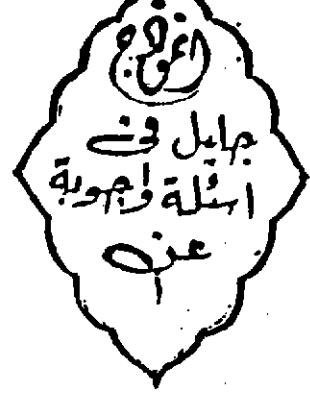 انموذج
جليل فى
اسئلة واجوبة
عن